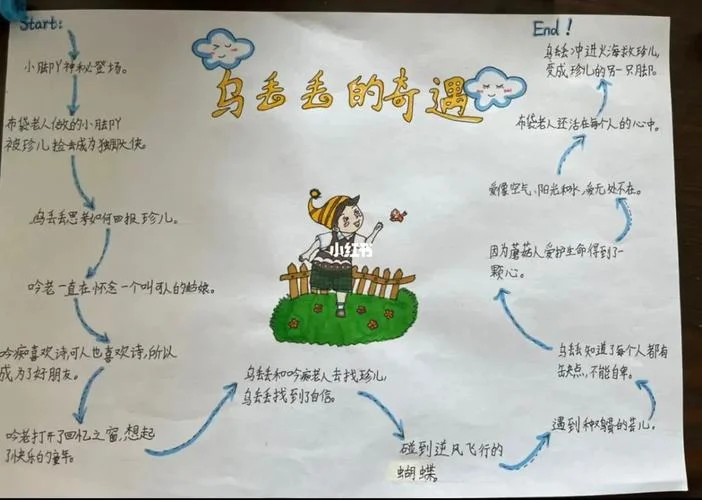 Start:
小脚丫神秘登场。
布袋老人做的小脚丫
被珍儿捡去成为独脚大侠。
乌丢丢思考如何回报珍儿。
吟老一直在怀念一个叫可人的姑娘。
吟痴喜欢诗可人也喜欢诗,所以
成为了好朋友。
吟老打开了回忆之窗,想起
了快乐的童年。
乌丢丢的奇遇
小红书
乌丢丢和吟痴老人去找珍儿,
乌丢丢找到了自信。
碰到逆风飞行的
蝴蝶。
遇到种鳗的芸儿。
乌丢丢知道了每个人都有
缺点,不能自卑。
因为蘑菇人爱护生命得到了一
颗心。
爱像空气、阳光和水,爱无处不在。
布袋老人还活在每个人的心中。
乌丢丢冲进火海救珍儿,
变成珍儿的另一只脚。
End!